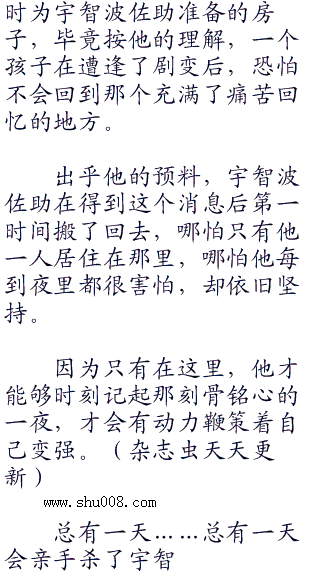 时为宇智波佐助准备的房
子，毕竟按他的理解，一个
孩子在遭逢了剧变后，恐怕
不会回到那个充满了痛苦回
忆的地方。
出乎他的预料，宇智波
佐助在得到这个消息后第一
时间搬了回去，哪怕只有他
一人居住在那里，哪怕他每
到夜里都很害怕，却依旧坚
持。
因为只有在这里，他才
能够时刻记起那刻骨铭心的
一夜，才会有动力鞭策着自
己变强。（杂志虫天天更
新）
www.shu008.com
总有一天……总有一天
会亲手杀了宇智